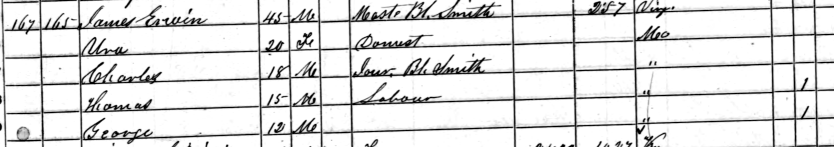 167 165 James Erwin 45 M Mast. Bl. Smith 257 Virg.
Una 20 Fe Domest Mo
Charles 18 M Jour. Bl. Smith "
Thomas 15 M Labour " 1
George 12 M " 1